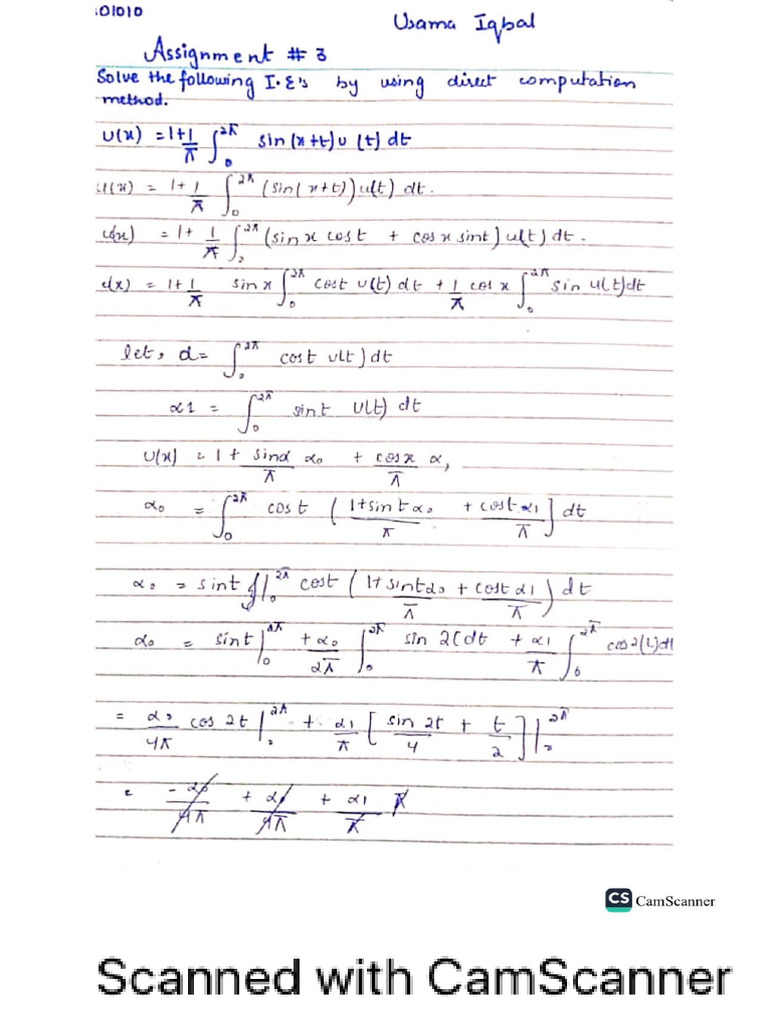 01010
Usama Iqbal
Assignment # 3
Solve the following I.E's by using direct computation
method.
u(x) = 1+1/π ∫₀^2π sin(x+t)u(t) dt
u(x) = 1+1/π ∫₀^2π (sin(x+t))u(t) dt.
u(x) = 1+ 1/π ∫₀^2π (sinx cost + cosx sint) u(t) dt.
u(x) = 1+1/π sinx ∫₀^2π cost u(t) dt + 1/π cosx ∫₀^2π sin u(t)dt
let, α = ∫₀^2π cost u(t) dt
α1 = ∫₀^2π sint u(t) dt
u(x) = 1 + sinα/π α₀ + cosx/π α,
α₀ = ∫₀^2π cost (1+sintα₀/π + costα1/π] dt
α₀ = sint |₀^2π cost (1+sintα₀/π + costα1/π) dt
α₀ = sint|₀^2π + α₀/2π ∫₀^2π sin 2(dt + α1/π ∫₀^2π cos2(t)dt
= α₀/4π cos2t|₀^2π + α1/π [sin2t/4 + t/2]|₀^2π
= -α₀/4π + α₀/4π + α1/π π
CS CamScanner
Scanned with CamScanner